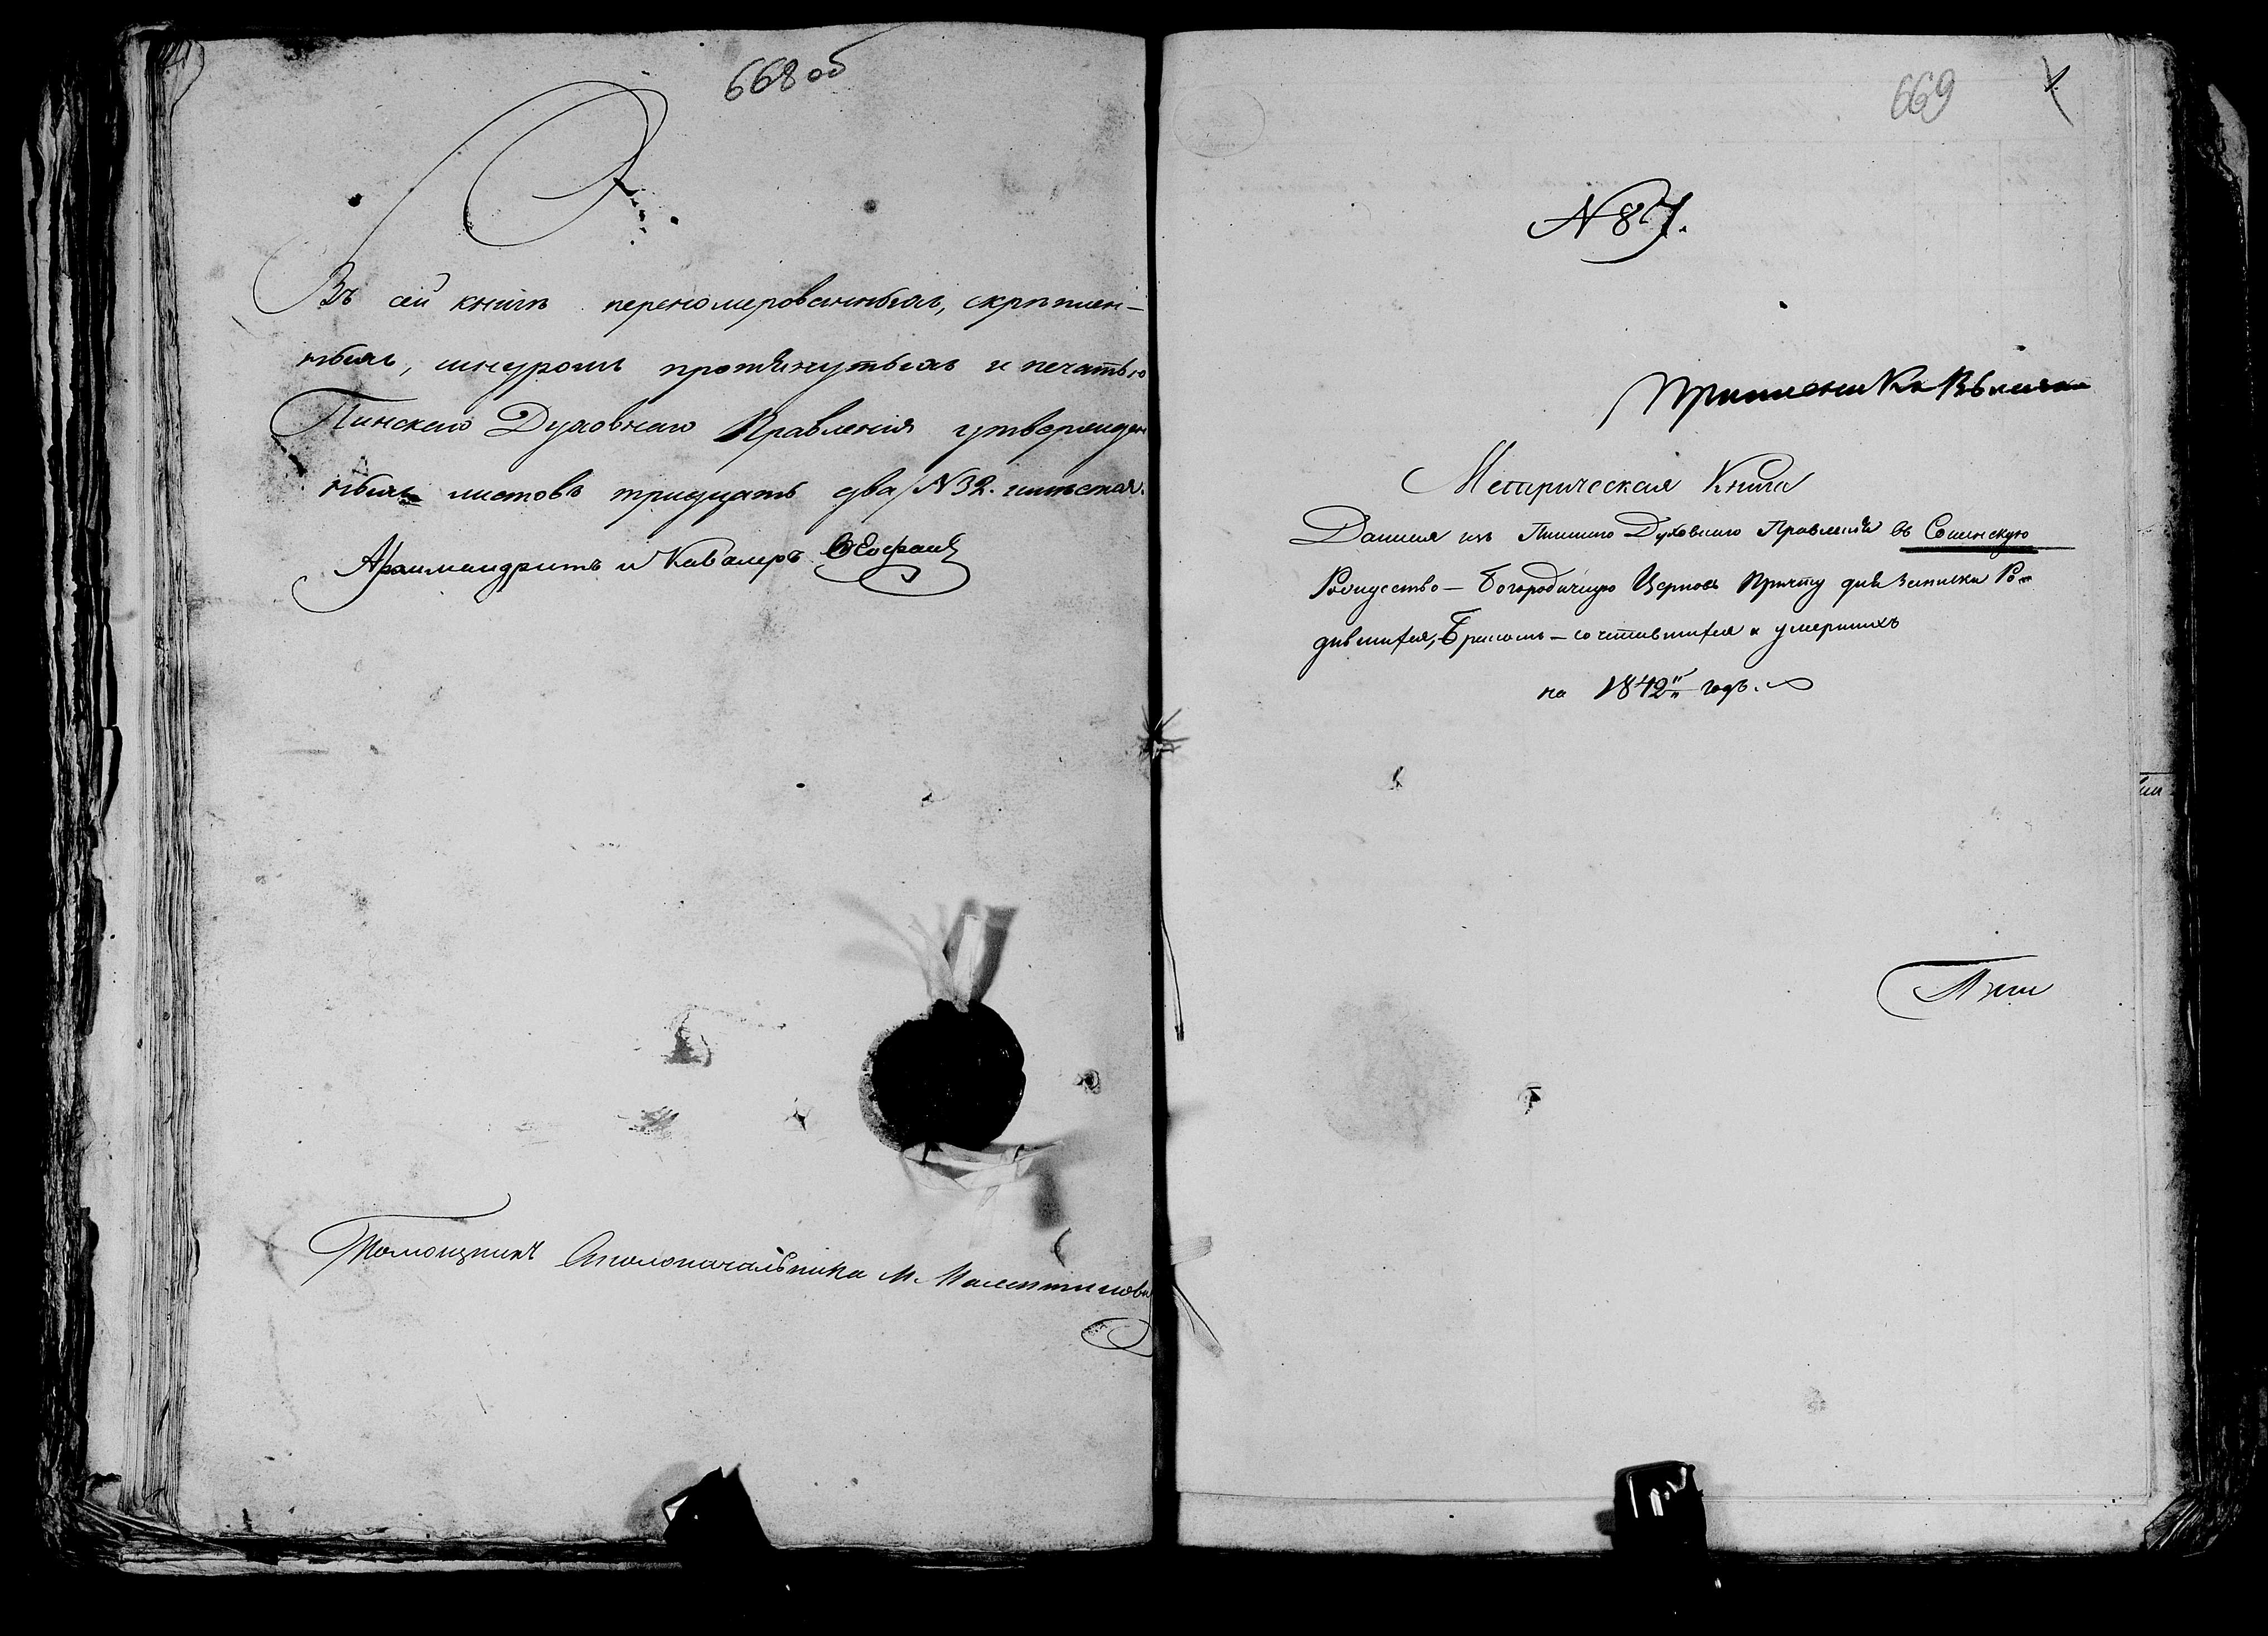 668 об
Въ сей книгѣ перенумерованныхъ, скрѣплен-
ныхъ, шнуромъ протянутыхъ и печатью
Пинскаго Духовнаго Правленія утвержден
ныхъ листовъ тридцать два / N 32.
Архимандритъ и Кавалеръ
Помощникъ Столоначальника М.
669
1.
N 87.
Метрическая Книга
Данная изъ Пинскаго Духовнаго Правленія въ Сошнскую
Рождество-Богородичную Церковь Причту для записки Ро-
дившихся, Бракомъ-сочетавшихся и умершихъ
на 1842й годъ.